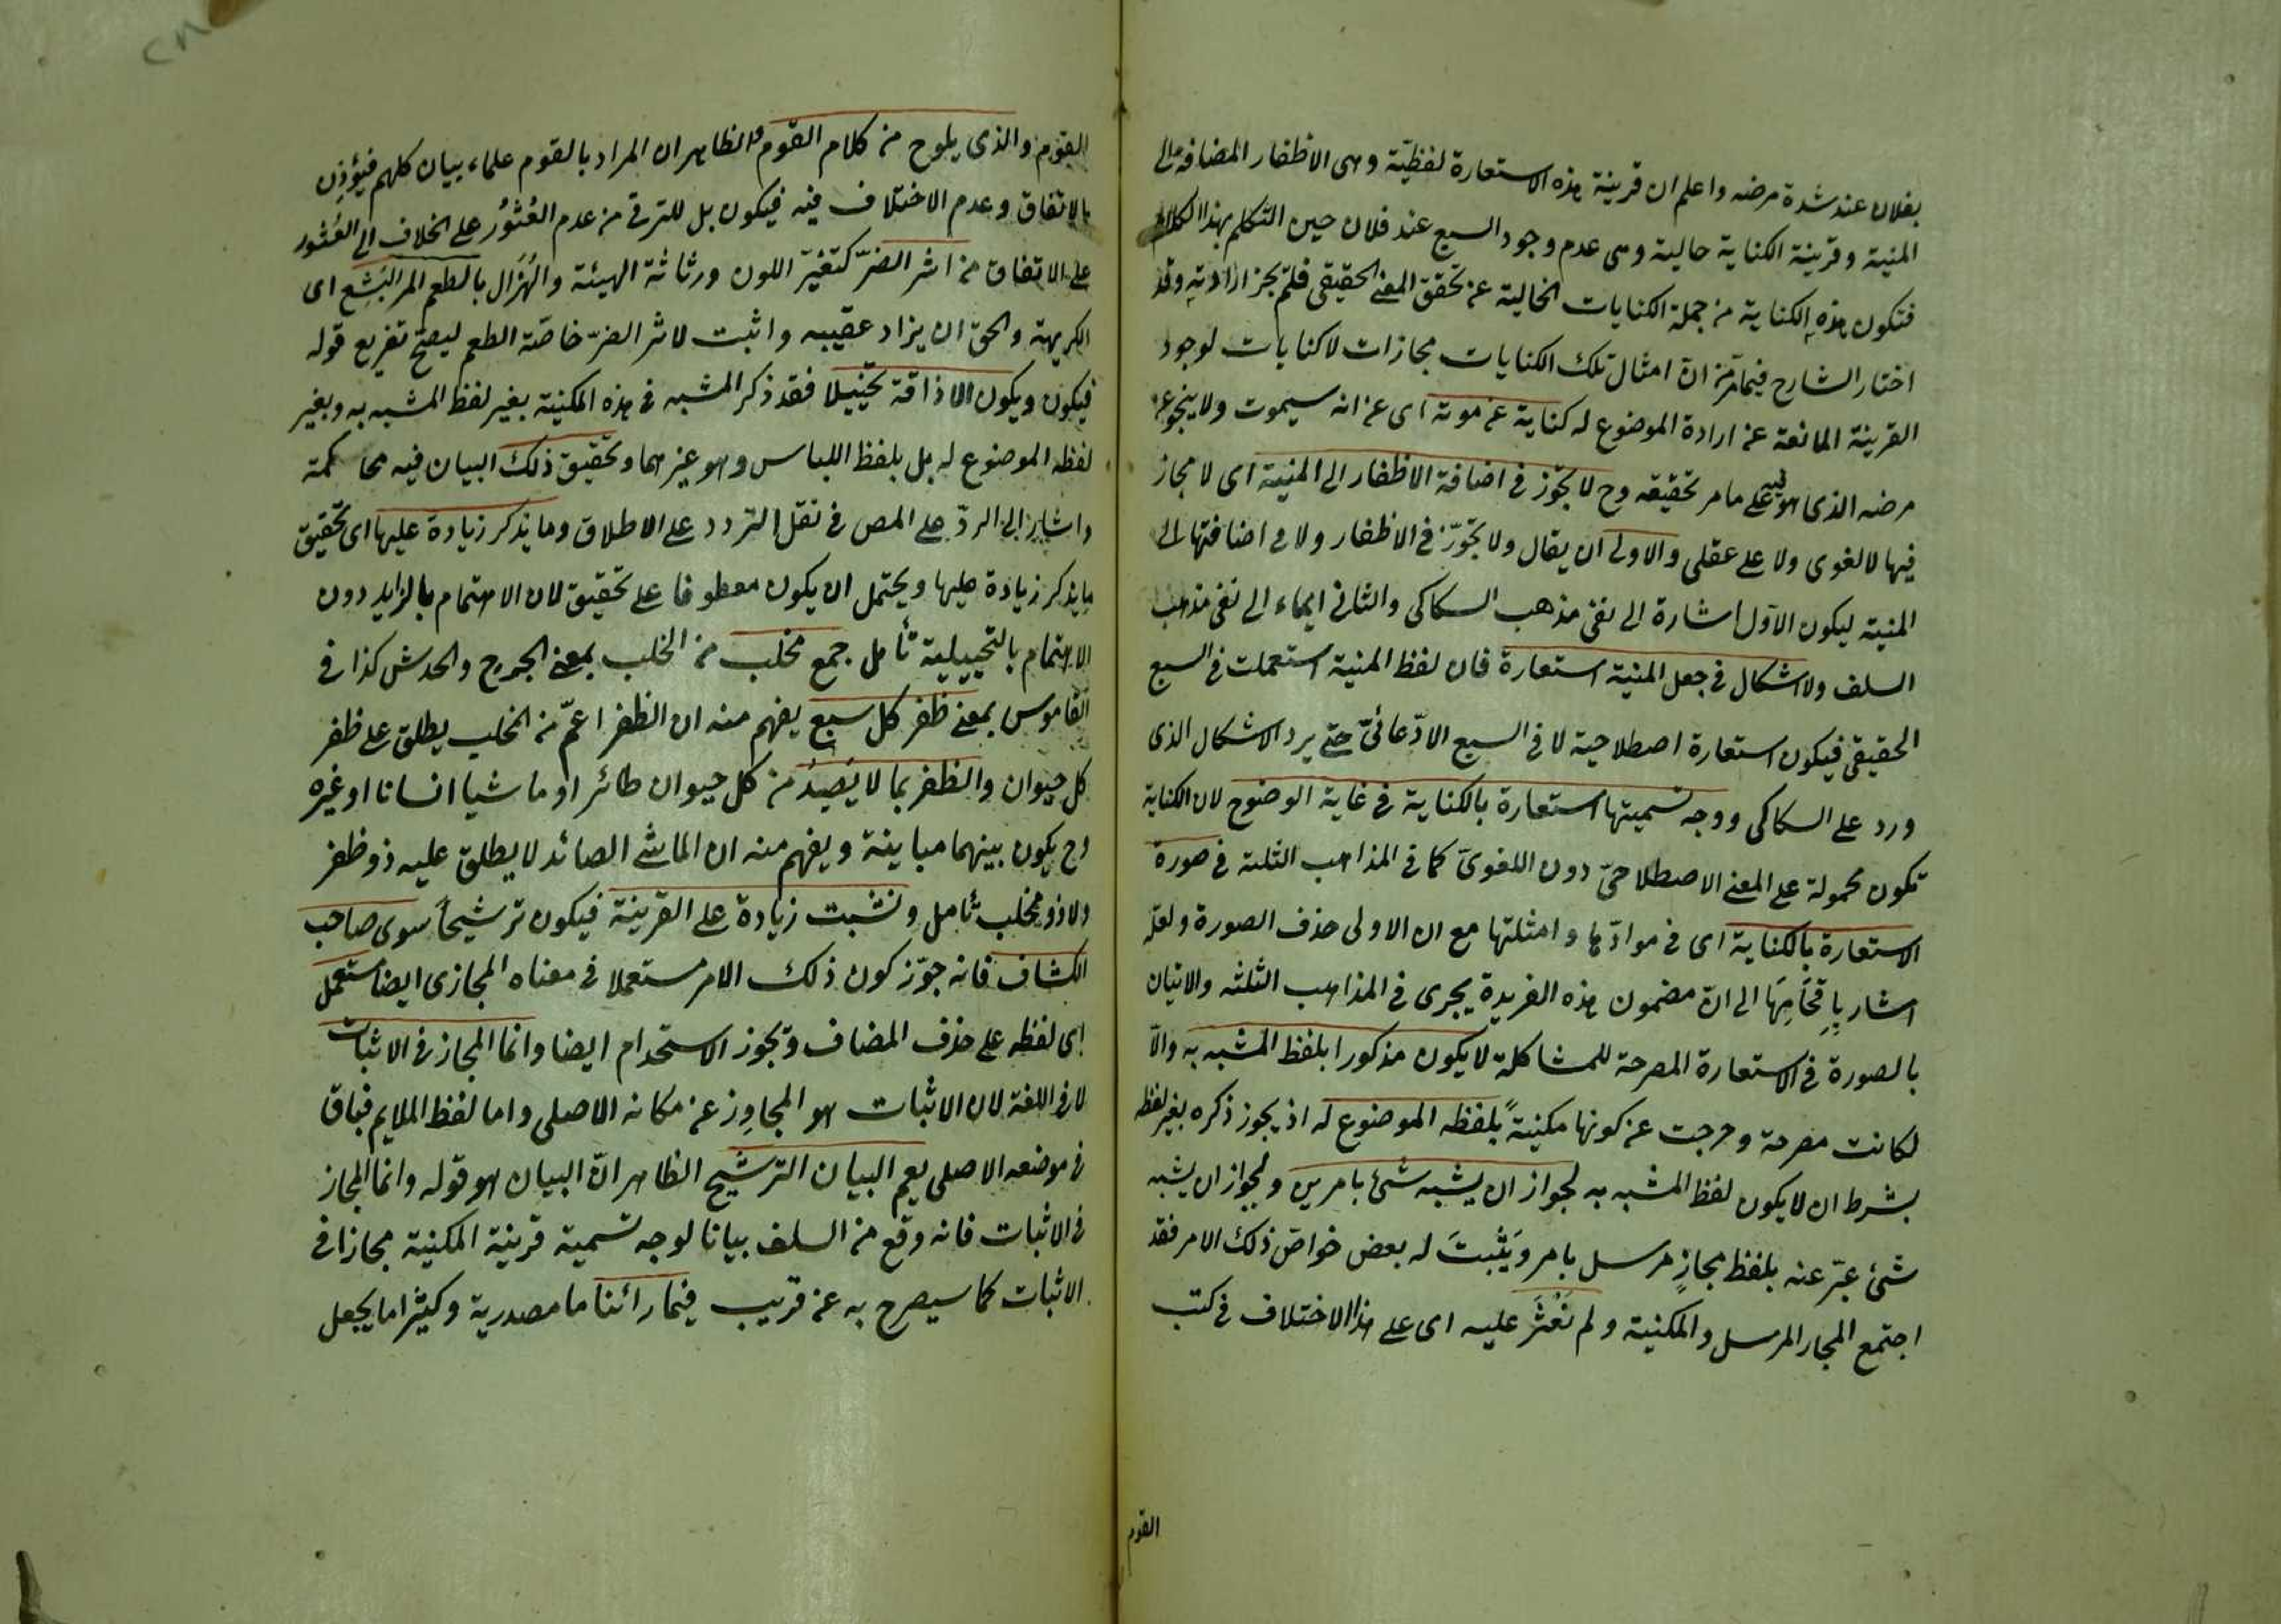 بفلان عند شدة مرضه واعلم ان قرينة هذه الاستعارة لفظيّة وهى الاظفار المضافة الى
المنية وقرينة الكناية حالية وهى عدم وجود السبع عند فلان حين التكلم بهذا الكلام
فتكون هذه الكناية من جملة الكنايات الخالية عن تحقق المعنى الحقيقى فلم يجز ارادته وقد
اختار الشارح فيما مرّ من انّ امثال تلك الكنايات مجازات لا كنايات لوجود
القرينة المانعة عن ارادة الموضوع له كناية عن موته اى عن انه سيموت ولا ينجو عن
مرضه الذى هو فيه على ما مر تحقيقه وح لا تجوّز فى اضافة الاظفار الى المنية اى لا مجاز
فيها لا لغوى ولا على عقلى والاولى ان يقال ولا تجوّز فى الاظفار ولا فى اضافتها الى
المنية ليكون الاول اشارة الى نفى مذهب السكاكى والثانى ايماء الى نفى مذهب
السلف ولا اشكال فى جعل المنية استعارة فان لفظ المنية استعملت فى السبع
الحقيقى فيكون استعارة اصطلاحية لا فى السبع الادّعائىّ حتى يرد الاشكال الذى
ورد على السكاكى ووجه تسميتها استعارة بالكناية فى غاية الوضوح لان الكناية
تكون محمولة على المعنى الاصطلاحىّ دون اللغوىّ كما فى المذاهب الثلثة فى صورة
الاستعارة بالكناية اى فى موادّها وامثلتها مع ان الاولى حذف الصورة ولعلّه
اشار بِاِقحَامِهَا الى انّ مضمون هذه الفريدة يجرى فى المذاهب الثلثه والاتيان
بالصورة فى الاستعارة المصرحة للمشاكلة لا يكون مذكورا بلفظ المشبه به والّا
لكانت مصرحة وخرجت عن كونها مكنيةً بلفظه الموضوع له اذ يجوز ذكره بغير لفظه
بشرط ان لا يكون لفظ المشبه به لجواز ان يشبه شئ بامرين ولجواز ان يشبه
شئ عبّر عنه بلفظ مجازٍ مرسل بامر ويَثبتَ له بعض خواصّ ذلك الامر فقد
اجتمع المجاز المرسل والمكنية ولم نَعْثَر عليه اى على هذا الاختلاف فى كتب
القوم
القوم والذى يلوح من كلام القوم الظاهر ان المراد بالقوم علماء بيان كلهم فيؤذن
بالاتفاق وعدم الاختلاف فيه فيكون بل للترقى من عدم العُثُورُ على الخلاف الى العُثور
على الاتفاق من اثر الضرّ كتغيّر اللون ورثاثة الهيئة والهُزَال بالطعم المر البَشِع اى
الكريهة والحق ان يزاد عقيبه واثبت لاثر الضرّ خاصّة الطعم ليصحّ تفريع قوله
فيكون ويكون الاذاقة تخييلا فقد ذكر المشبه فى هذه المكنية بغير لفظ المشبه به وبغير
لفظه الموضوع له بل بلفظ اللباس وهو غيرهما وتحقيق ذلك البيان فيه محاكمة
واشار الى الردّ على المص فى نقل التردد على الاطلاق وما يذكر زيادة عليها اى تحقيق
ما يذكر زيادة عليها ويحتمل ان يكون معطوفا على تحقيق لان الاهتمام بالزايد دون
الاهتمام بالتخييلية تأمل جمع مخلب من الخلب بمعنى الجرح والخدش كذا فى
القاموس بمعنى ظفر كل سبع يفهم منه ان الظفر اعمّ من المخلب يطلق على ظفر
كل حيوان والظفر بما لا يَصِيدُ من كل حيوان طائر او ماشيا انسانا او غيره
وح يكون بينهما مباينة ويفهم منه ان الماشى الصائد لا يطلق عليه ذو ظفر
ولا ذو مخلب تأمل ونثبت زيادة على القرينة فيكون ترشيحًا سوى صاحب
الكشاف فانه جوّز كون ذلك الامر مستعملا فى معناه المجازى ايضا مستعمل
اى لفظه على حذف المضاف وتجوز الاستخدام ايضا وانما المجاز فى الاثبات
لا فى اللغة لان الاثبات هو المجاوِز عن مكانه الاصلى واما لفظ الملايم فباق
فى موضعه الاصلى يعم البيان الترشيح الظاهر انّ البيان هو قوله وانما المجاز
فى الاثبات فانه وقع من السلف بيانا لوجه تسمية قرينة المكنية مجازا فى
الاثبات كما سيصرح به عن قريب فيما رائنا ما مصدرية وكثيرا ما يجعل